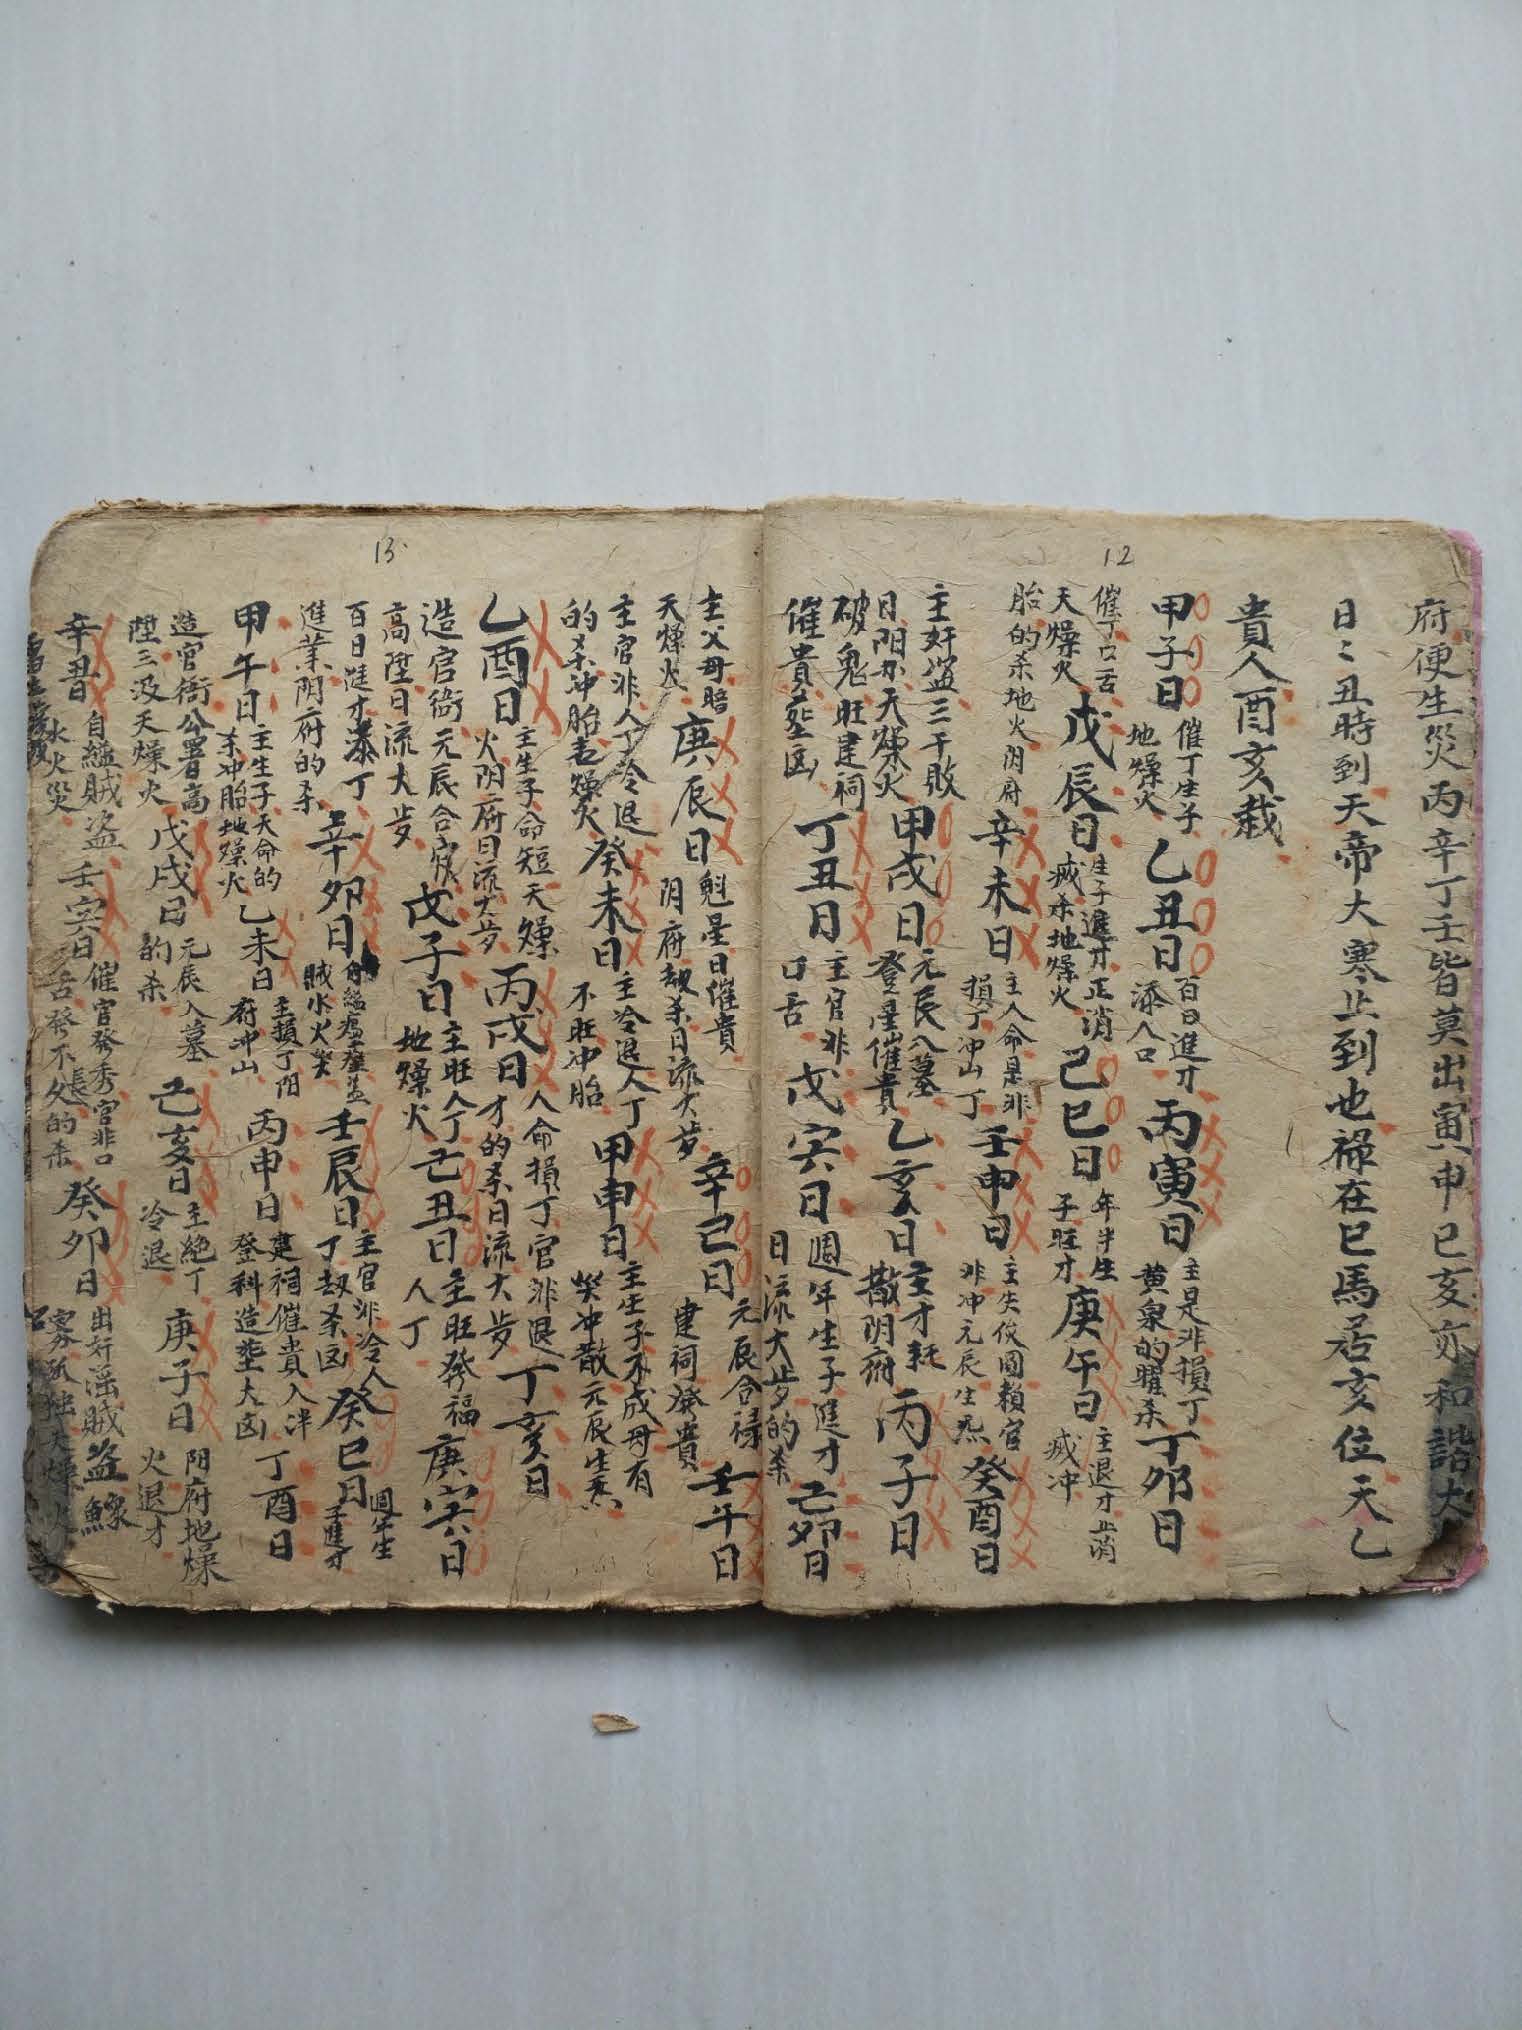 12
府便生災丙辛丁壬皆莫出寅申巳亥亦和諧大
日〻丑時到天帝大寒止到也祿在巳馬居亥位天乙
貴人酉亥栽
甲子日 催丁生子 地燥火 乙丑日 百日進才 添人口 丙寅日 主是非損丁 黄泉的曜杀 丁卯日
催丁口舌 天燥火 戊辰日 生子進才正消 滅杀地燥火 己巳日 年半生 子旺才 庚午日 主退才正消 滅冲
胎的杀地火阴府 辛未日 主人命是非 損丁冲山丁 壬申日 主失伩圖賴官 非冲元辰生炁 癸酉日
主奸盗三干敗 日阴府天燥火 甲戌日 元辰入墓 登星催貴 乙亥日 主才耗 散阴府 丙子日
破鬼旺建祠 催貴塟凶 丁丑日 主官非 口舌 戊寅日 週年生子進才 日流太步的杀 己卯日
13
主父母暗 天燥火 庚辰日 魁星日催貴 阴府劫杀日流太步 辛巳日 元辰合禄 建祠發貴 壬午日
主官非人丁冷退 的杀冲胎地燥火 癸未日 主冷退人丁 不旺冲胎 甲申日 主生子不成母有 災冲散元辰生炁
乙酉日 主生子命短天燥 火阴府日流太步 丙戌日 人命損丁官非退 才的杀日流太步 丁亥日
造官衙元辰合 高陞日流太步 戊子日 主旺人丁 地燥火 己丑日 主旺發福 人丁 庚寅日
百日進才添丁 進業阴府的杀 辛卯日 賊水火災 壬辰日 主官非冷人 丁劫杀凶 癸巳日 週年生 子進才
甲午日 主生子夭命的 杀冲胎地燥火 乙未日 主損丁阳 府冲山 丙申日 建祠催貴入泮 登科造塟大凶 丁酉日
造官衙公署高 陞三汲天燥火 戊戌日 元辰入墓 的杀 己亥日 主絶丁 冷退 庚子日 阴府地燥 火退才
辛丑日 自縊賊盗 水火災 壬寅日 催官發秀官非口 舌發不久長的杀 癸卯日 出奸滛賊盗鰥